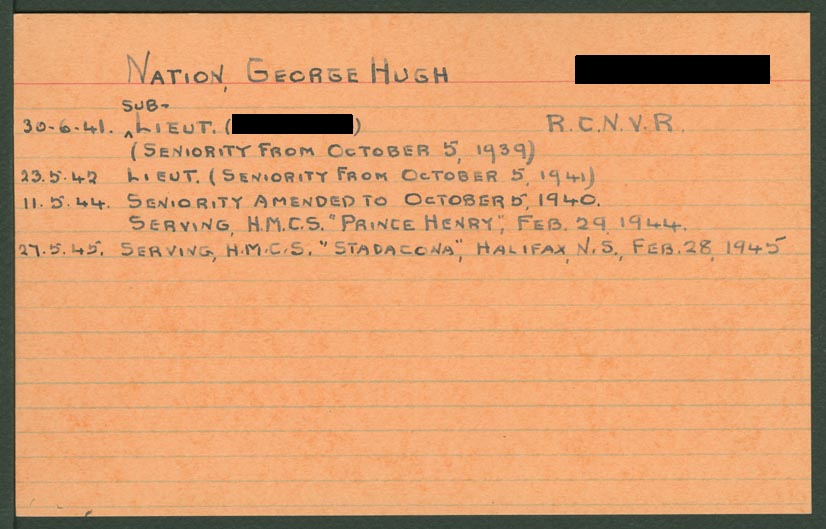 NATION, GEORGE HUGH
30-6-41. SUB-LIEUT. ( ) R.C.N.V.R.
(SENIORITY FROM OCTOBER 5, 1939)
23.5.42 LIEUT. (SENIORITY FROM OCTOBER 5, 1941)
11.5.44. SENIORITY AMENDED TO OCTOBER 5, 1940.
SERVING, H.M.C.S. "PRINCE HENRY", FEB. 29, 1944.
27.5.45. SERVING, H.M.C.S. "STADACONA", HALIFAX, N.S., FEB. 28, 1945